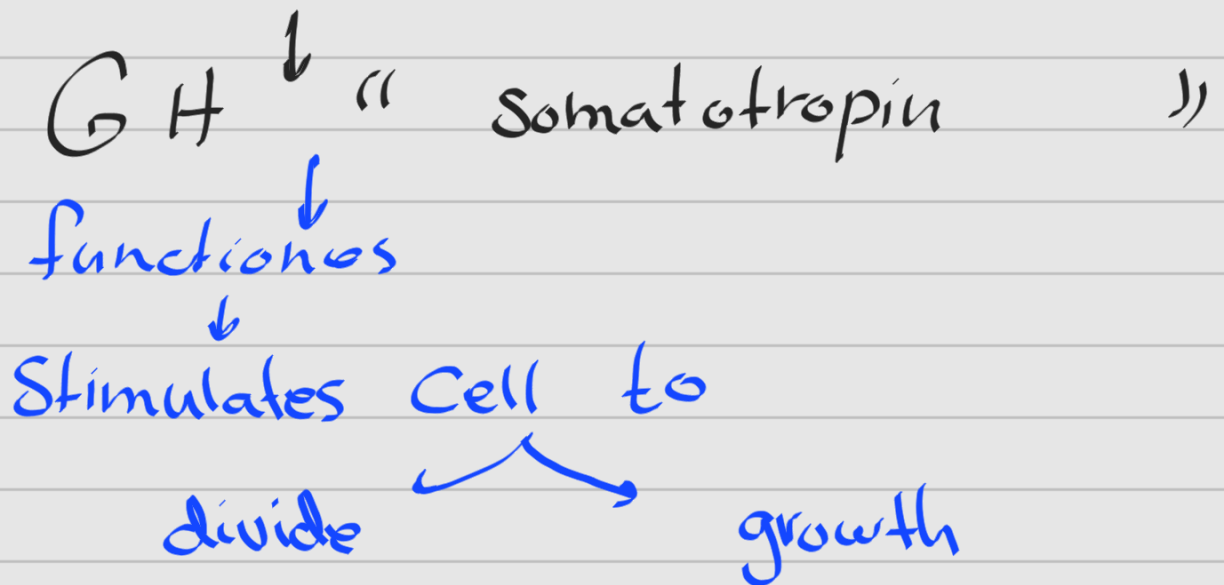 GH " somatotropin "
functiones
Stimulates Cell to
divide growth